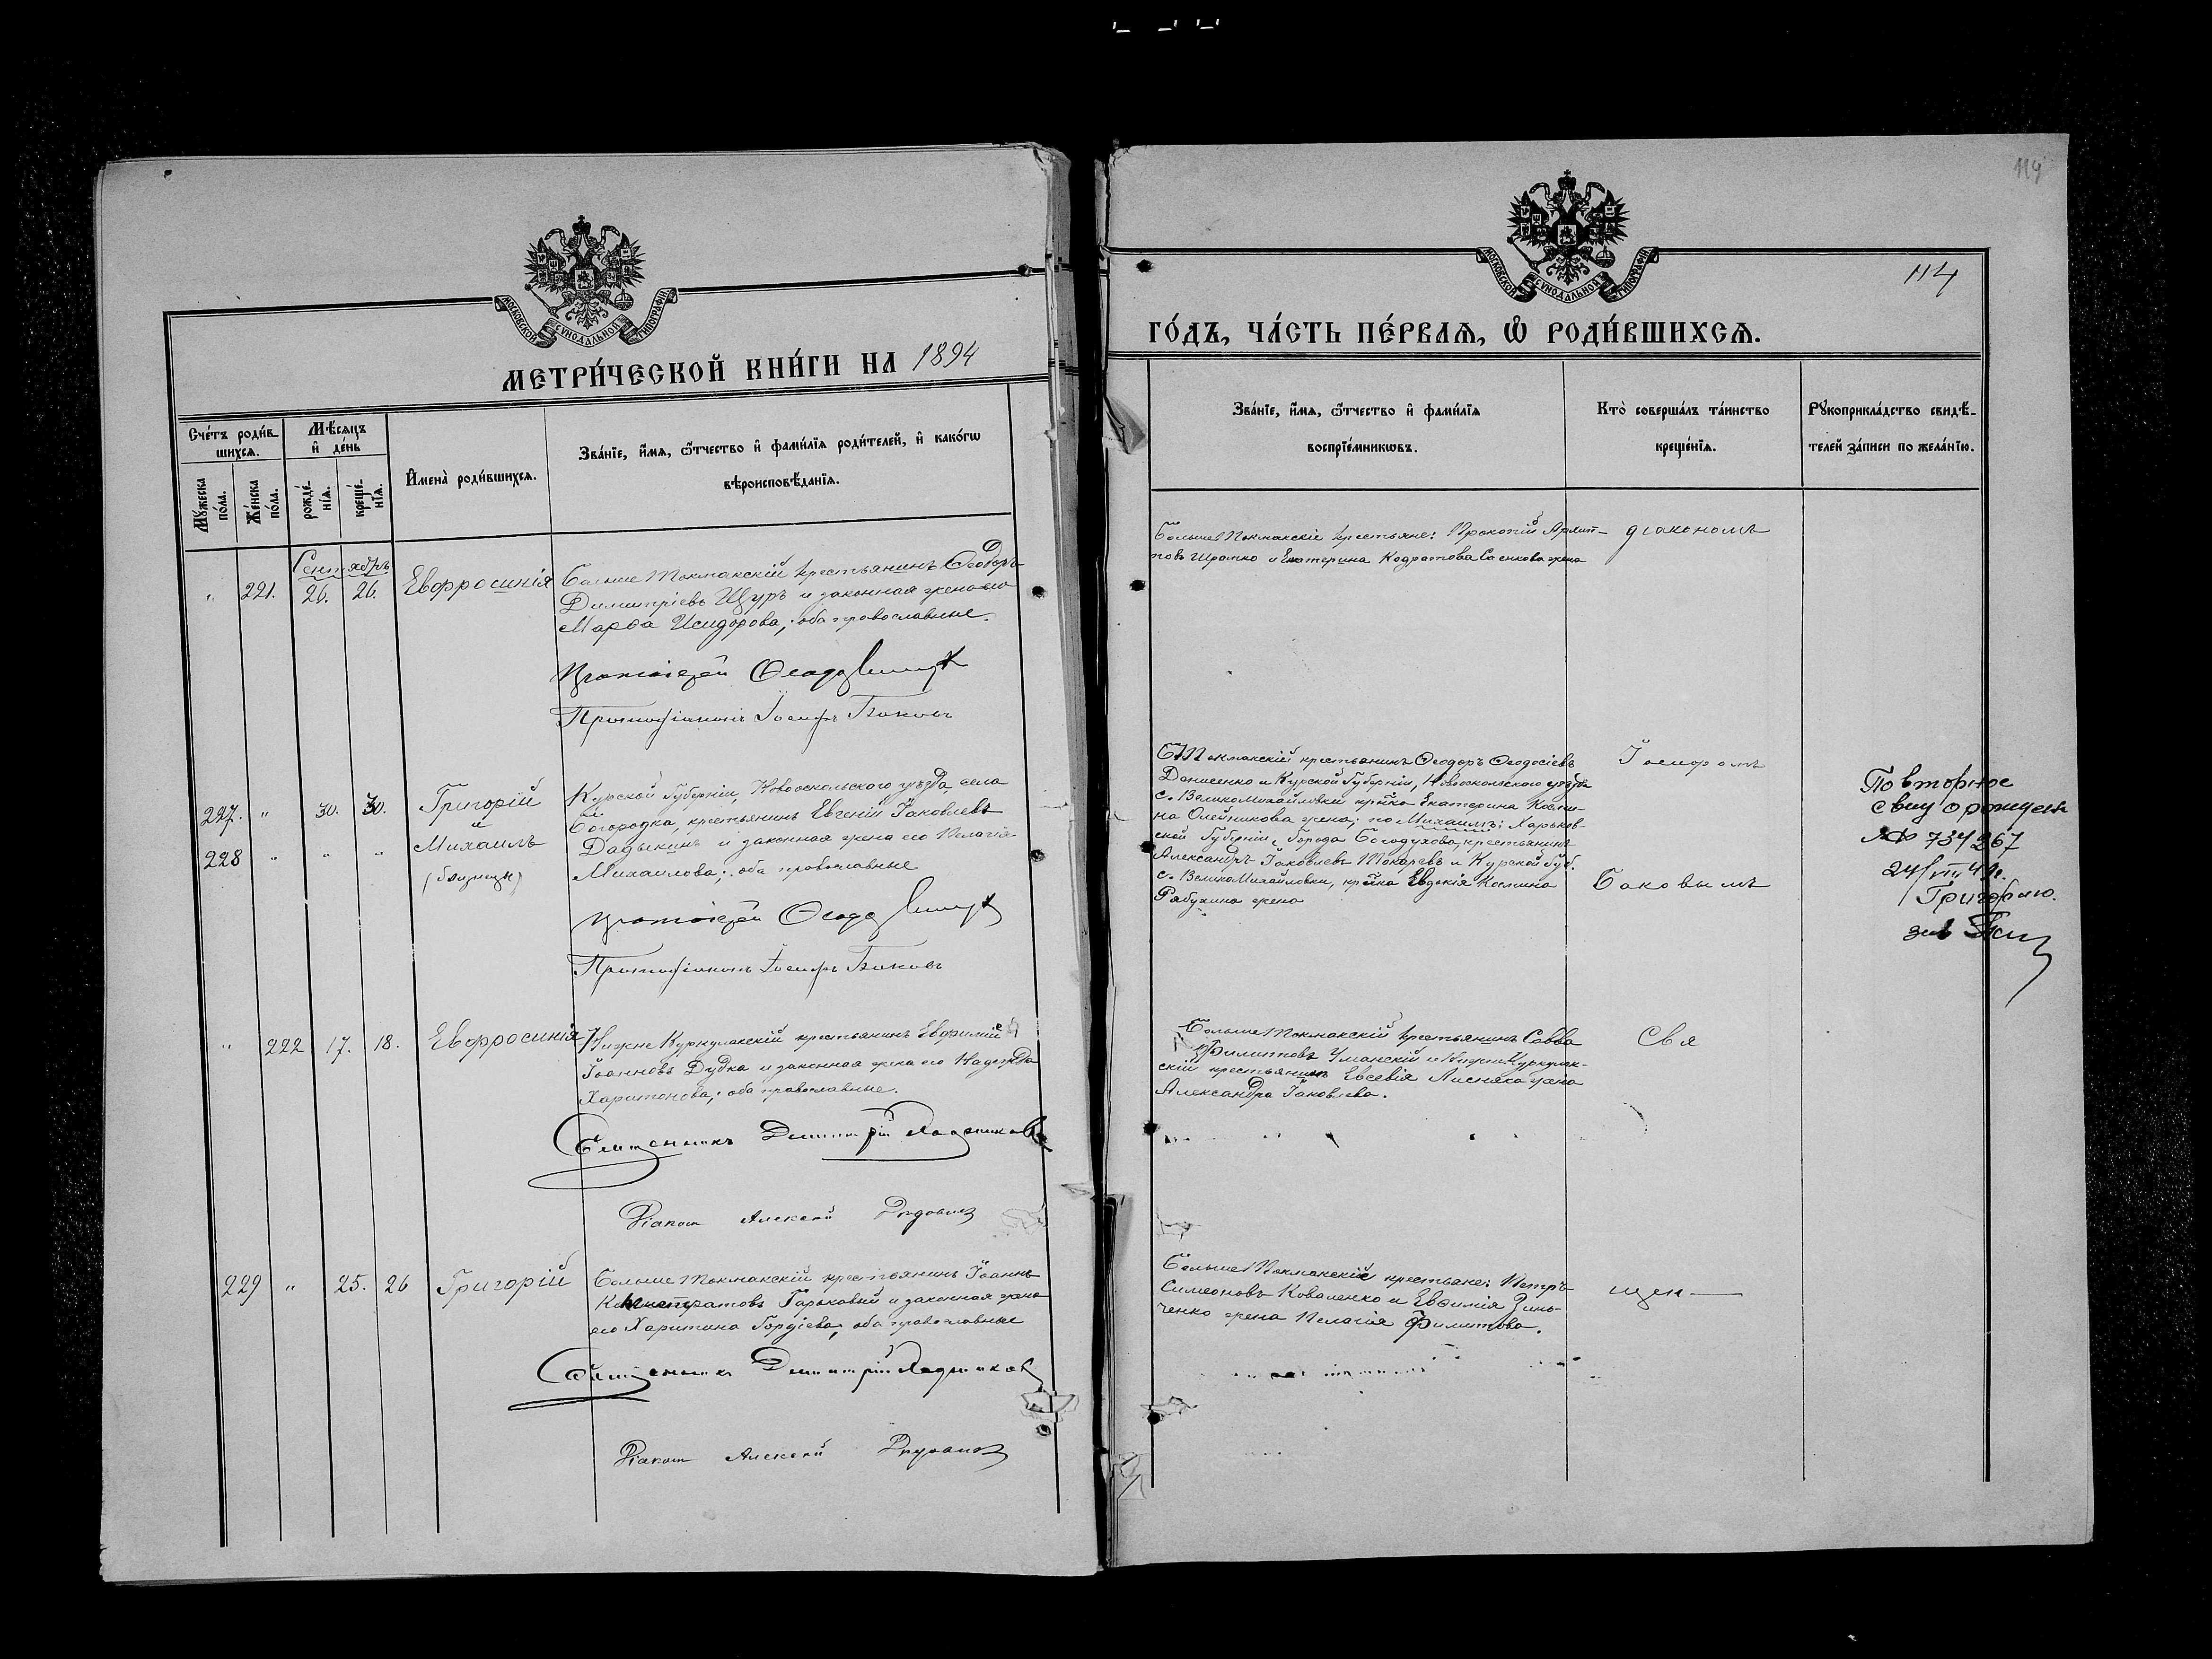 МОСКОВСКОЙ СѴНОДАЛЬНОЙ ТИПОГРАФІИ
МЕТРИ́ЧЕСКОЙ КНИ́ГИ НА 1894
Сче́тъ роди́вшихся.
Мѣ́сяцъ и҆ де́нь
И҆мена̀ роди́вшихся.
Зва́нїе, и҆́мя, ѻ҆́тчество и҆ фами́лїя роди́телей, и҆ како́гѡ
вѣроисповѣ́данїя.
Мꙋ́жеска по́ла.
Же́нска по́ла.
рожде́нїя.
креще́нїя.
Сентябрь
" 221. 26. 26. Евфросинія
Больше Токмакскій крестьянинъ Ѳеодоръ
Димитріевъ Щуръ и законная жена его
Марѳа Исидорова, оба православные.
Протоіерей
Протодіаконъ Іосифъ Баковъ
227. " 30. 30. Григорій
и
228 " " " Михаилъ
(близнецы)
Курской Губерніи, Новооскольскаго уѣзда, села
Богородка, крестьянинъ Евгеній Іаковлевъ
Дадыкинъ и законная жена его Пелагія
Михаилова, оба православные
Протоіерей
Протодіаконъ Іосифъ Баковъ
" 222 17. 18. Евфросинія
Нижне Куркулакскій крестьянинъ Евфимій
Іоанновъ Дудка и законная жена его Надежда
Харитонова, оба православные.
Священникъ Димитрій
Діаконъ Алексей
229 " 25. 26 Григорій
Больше Токмакскій крестьянинъ Іоаннъ
Горьковый и законная жена
его Харитина Гордіева, оба православные
Священникъ Димитрій
Діаконъ Алексей
114
МОСКОВСКОЙ СѴНОДАЛЬНОЙ ТИПОГРАФІИ
114
ГО́ДЪ, ЧА́СТЬ ПЕ́РВАЯ, Ѡ҆ РОДИ́ВШИХСЯ.
Зва́нїе, и҆́мя, ѻ҆́тчество и҆ фами́лїя
воспрїе́мникѡвъ.
Кто̀ соверша́лъ та́инство
креще́нїя.
Рꙋкоприкла́дство свидѣ́-
телей за́писи по жела́нїю.
Больше Токмакскіе крестьяне: Прокопій Архип-
повъ Шрамко и Екатерина Кодратова Саенкова жена
діакономъ
Б Токмакскій крестьянинъ Ѳеодоръ Ѳеодосіевъ
Денисенко и Курской Губерніи, Новооскольскаго уѣзда
с. ВеликоМихайловки кр-нка Екатерина Косми-
на Олейникова жена; по Михаилѣ: Харьков-
ской Губерніи, Города Богодухова, крестьянинъ
Александръ Іаковлевъ Токаревъ и Курской Губ.
с. ВеликоМихайловки, кр-нка Евдокія Космина
Рябухина жена
Іосифомъ
Баковымъ
Повторное
свид о рожден
№ 734267
24/VIII
Григорию.
Больше Токмакскій крестьянинъ Савва
Филипповъ Уманскій и Нижне Куркулак-
скій крестьянинъ Евсевія Лисняка жена
Александра Іаковлева.
Свя
Больше Токмакскіе крестьяне: Петръ
Симеоновъ Коваленко и Евфимія Зинь-
ченко жена Пелагія Филиппова.
щен